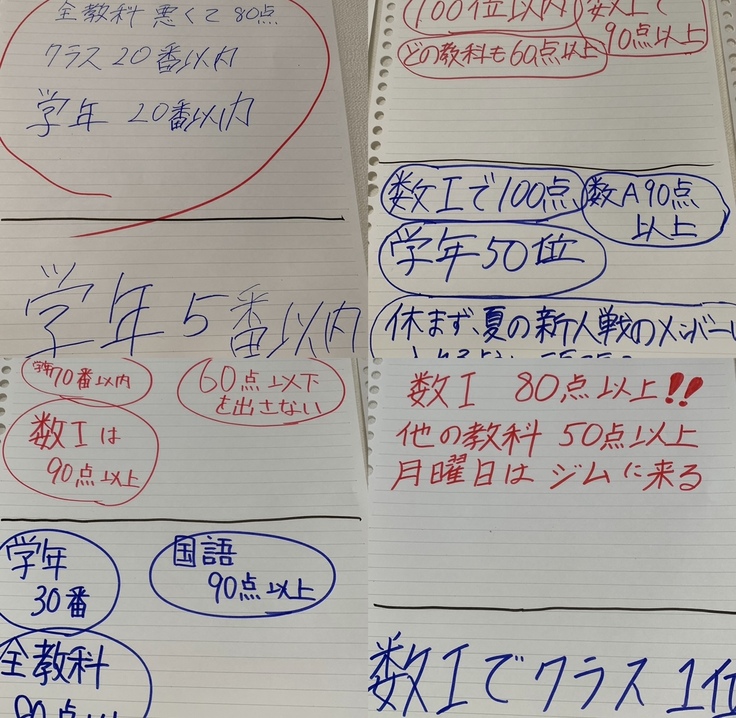 全教科 悪くて 80点
クラス 20番以内
学年 20番以内
学年 5番以内
100位以内
数Iで
90点以上
どの教科も60点以上
数Iで100点
数A90点
以上
学年50位
休まず、夏の新人戦のメンバーに
学年70番以内
60点以下
を出さない
数Iは
90点以上
学年
30番
国語
90点以上
全教科
数I 80点以上!!
他の教科 50点以上
月曜日は ジムに来る
数Iでクラス 1位